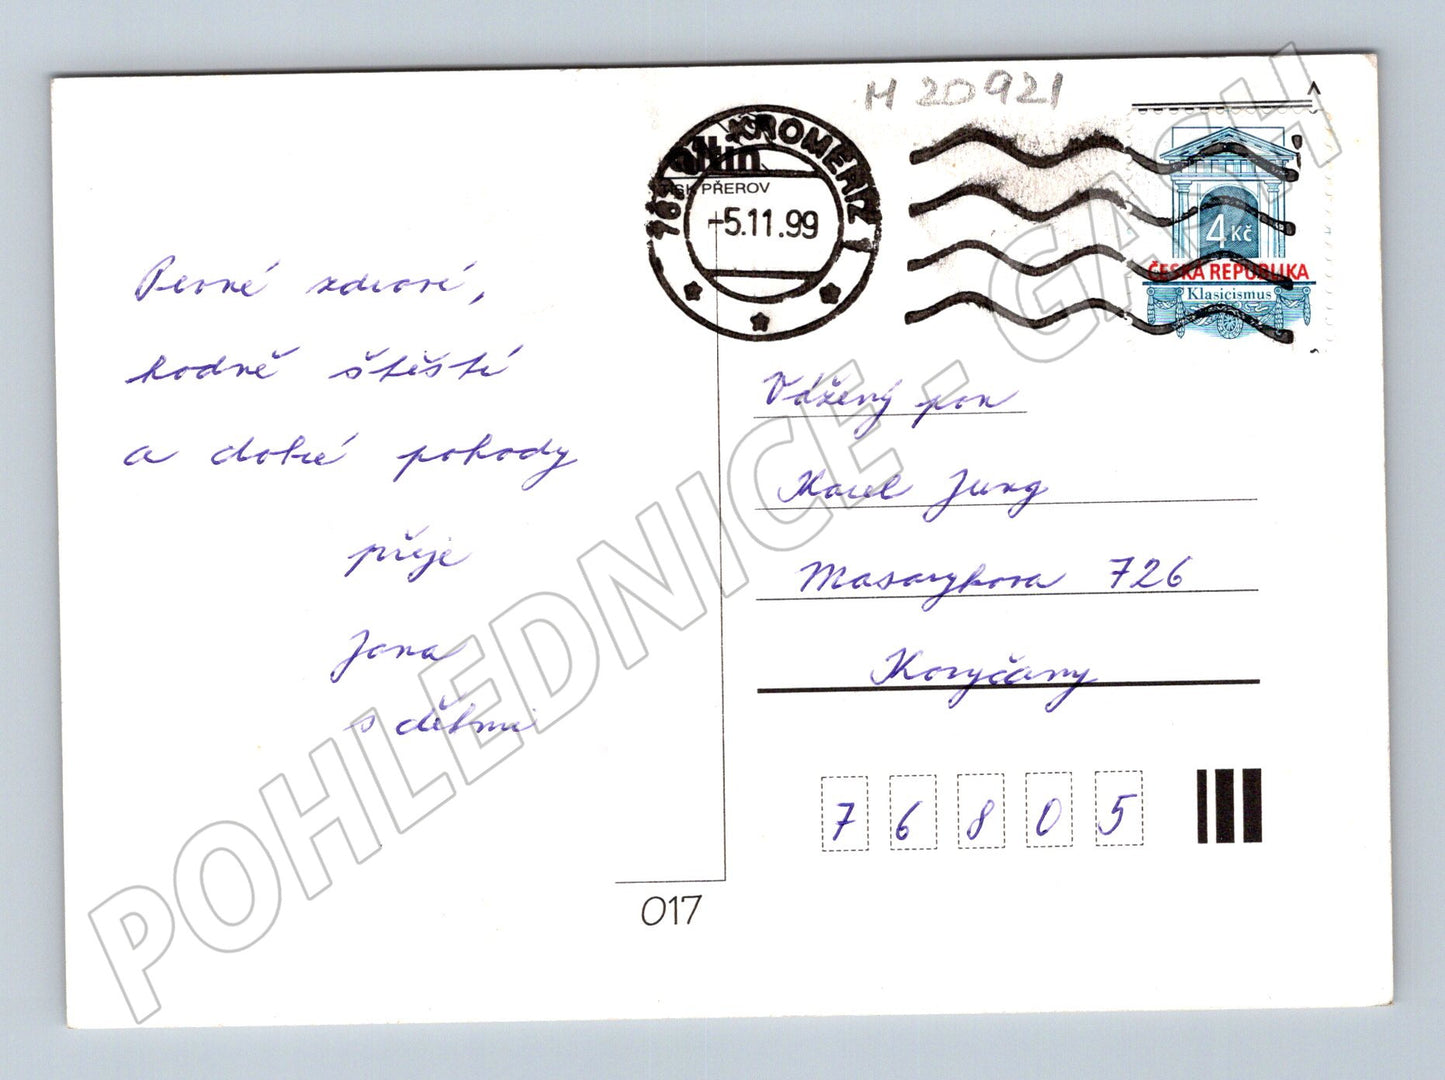 H 20921
767 01 KROMĚŘÍŽ 1
altin
TISK PŘEROV
-5.11.99
4 Kč
ČESKA REPUBLIKA
Klasicismus
Pevné zdraví,
hodně štěstí
a dobré pohody
přeje
Jana
s dětmi
Vážený pan
Karel Jung
Masarykova 726
Koryčany
76805
017
POHLEDNICE - GASH